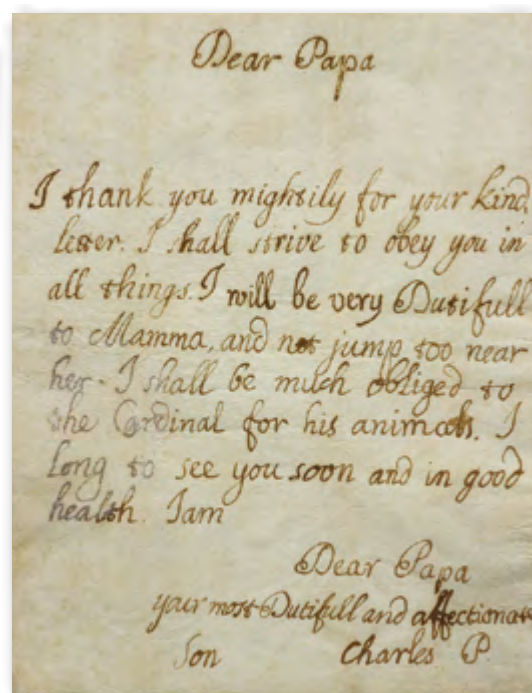 Dear Papa
I thank you mightily for your kind
letter. I shall strive to obey you in
all things. I will be very Dutifull
to Mamma, and not jump too near
her. I shall be much obliged to
the Cardinal for his animals. I
long to see you soon and in good
health. I am
Dear Papa
your most Dutifull and affectionate
Son Charles P